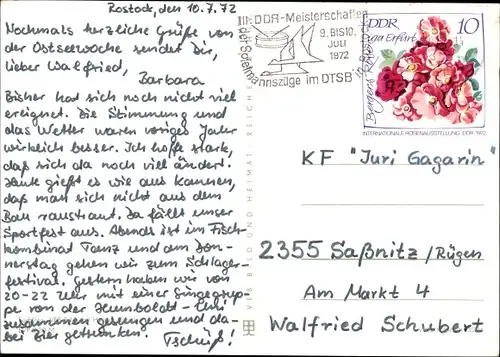 Rostock, den 10.7.72
Nochmals herzliche Grüße von
der Ostseewoche sendet Dir,
lieber Walfried,
Barbara
Bisher hat sich noch nicht viel
ereignet. Die Stimmung und
das Wetter waren voriges Jahr
wirklich besser. Ich hoffe stark,
daß sich da noch viel ändert.
Heute gießt es wie aus Kannen,
daß man sich nicht aus dem
Bau raustraut. Da fällt unser
Sportfest aus. Abends ist im Fisch-
kombinat Tanz und am Don-
nerstag gehen wir zum Schlager-
festival. Gestern haben wir von
20-22 Uhr mit einer Singegrup-
pe von der Humboldt-Uni
zusammen gesungen und da-
bei Bier getrunken. Tschüß!
VEB BILD UND HEIMAT REICHENBACH
III. DDR-Meisterschaften
der Spielmannszüge im DTSB in Rostock
9. BIS 10.
JULI
1972
DDR 10
iga Erfurt
Bergers Rose
INTERNATIONALE ROSENAUSSTELLUNG DDR 1972
KF "Juri Gagarin"
2355 Saßnitz/Rügen
Am Markt 4
Walfried Schubert